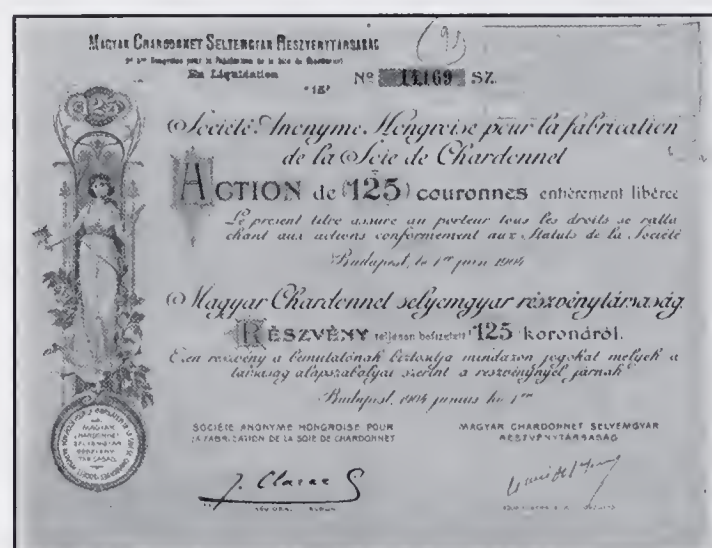 (91)
MAGYAR CHARDONNET SELYEMGYAR RESZVENYTÁRSASÁG
Sté Ame Hongroise pour la Fabrication de la Soie de Chardonnet
En Liquidation
No 11169 SZ.
125
Société Anonyme Hongroise pour la fabrication
de la Soie de Chardonnet
ACTION de (125) couronnes entièrement libéré
Le présent titre assure au porteur tous les droits se ratta
chant aux actions conformément aux Statuts de la Société
Budapest, le 1er juin 1904
Magyar Chardonnet selyemgyar részvénytársaság.
RÉSZVÉNY teljesen befizetett 125 koronáról.
Ezen részvény a bemutatónak biztosítja mindazon jogokat melyek a
társaság alapszabályai szerint a részvénynyel járnak
Budapest, 1904 junius hó 1én
SOCIÉTÉ ANONYME HONGROISE POUR
LA FABRICATION DE LA SOIE DE CHARDONNET
MAGYAR CHARDONNET SELYEMGYAR
RÉSTVÉNYTÁRSASÁG
MAGYAR
CHARDONNET
SELYEMGYAR
RÉSZVÉNY
TÁRSASÁG
J. Claraz